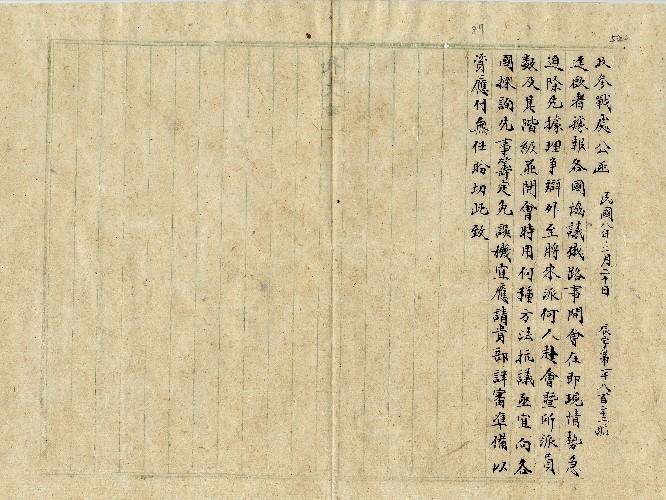 收參戰處公函 民國八年二月二十日 辰字第二千八百
逕啟者據報各國協議鐵路事開會在即現情勢急
迫除先據理爭辯外至將來派何人赴會暨所派員
數及其階級並開會時用何種方法抗議亟宜向各
國探詢先事籌定免誤機宜應請貴部詳審準備以
資應付無任盼切此致